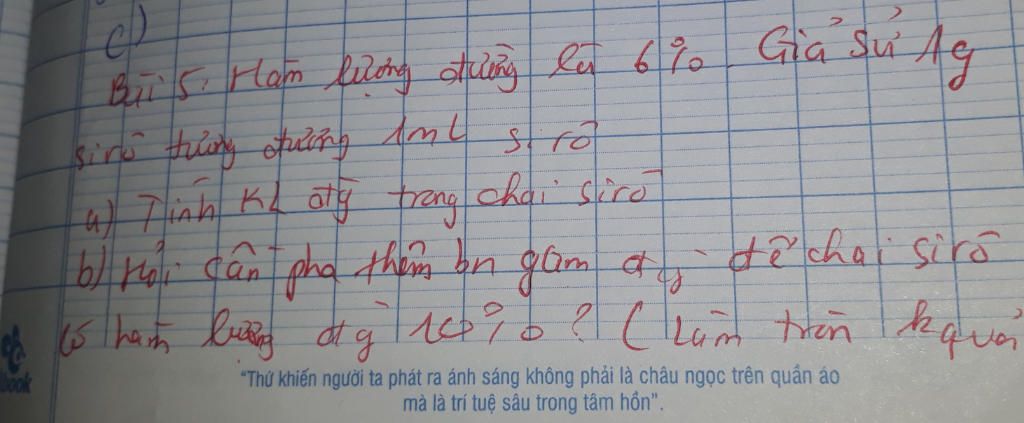 c)
Bài 5: Hàm lượng đường là 6%. Giả sử 1g
sirô tương đương 1ml sirô
a) Tính KL đg trong chai sirô
b) Hỏi cần pha thêm bn gam đg để chai sirô
có hàm lượng đg 10%? (Làm tròn kquả
book
"Thứ khiến người ta phát ra ánh sáng không phải là châu ngọc trên quần áo
mà là trí tuệ sâu trong tâm hồn".